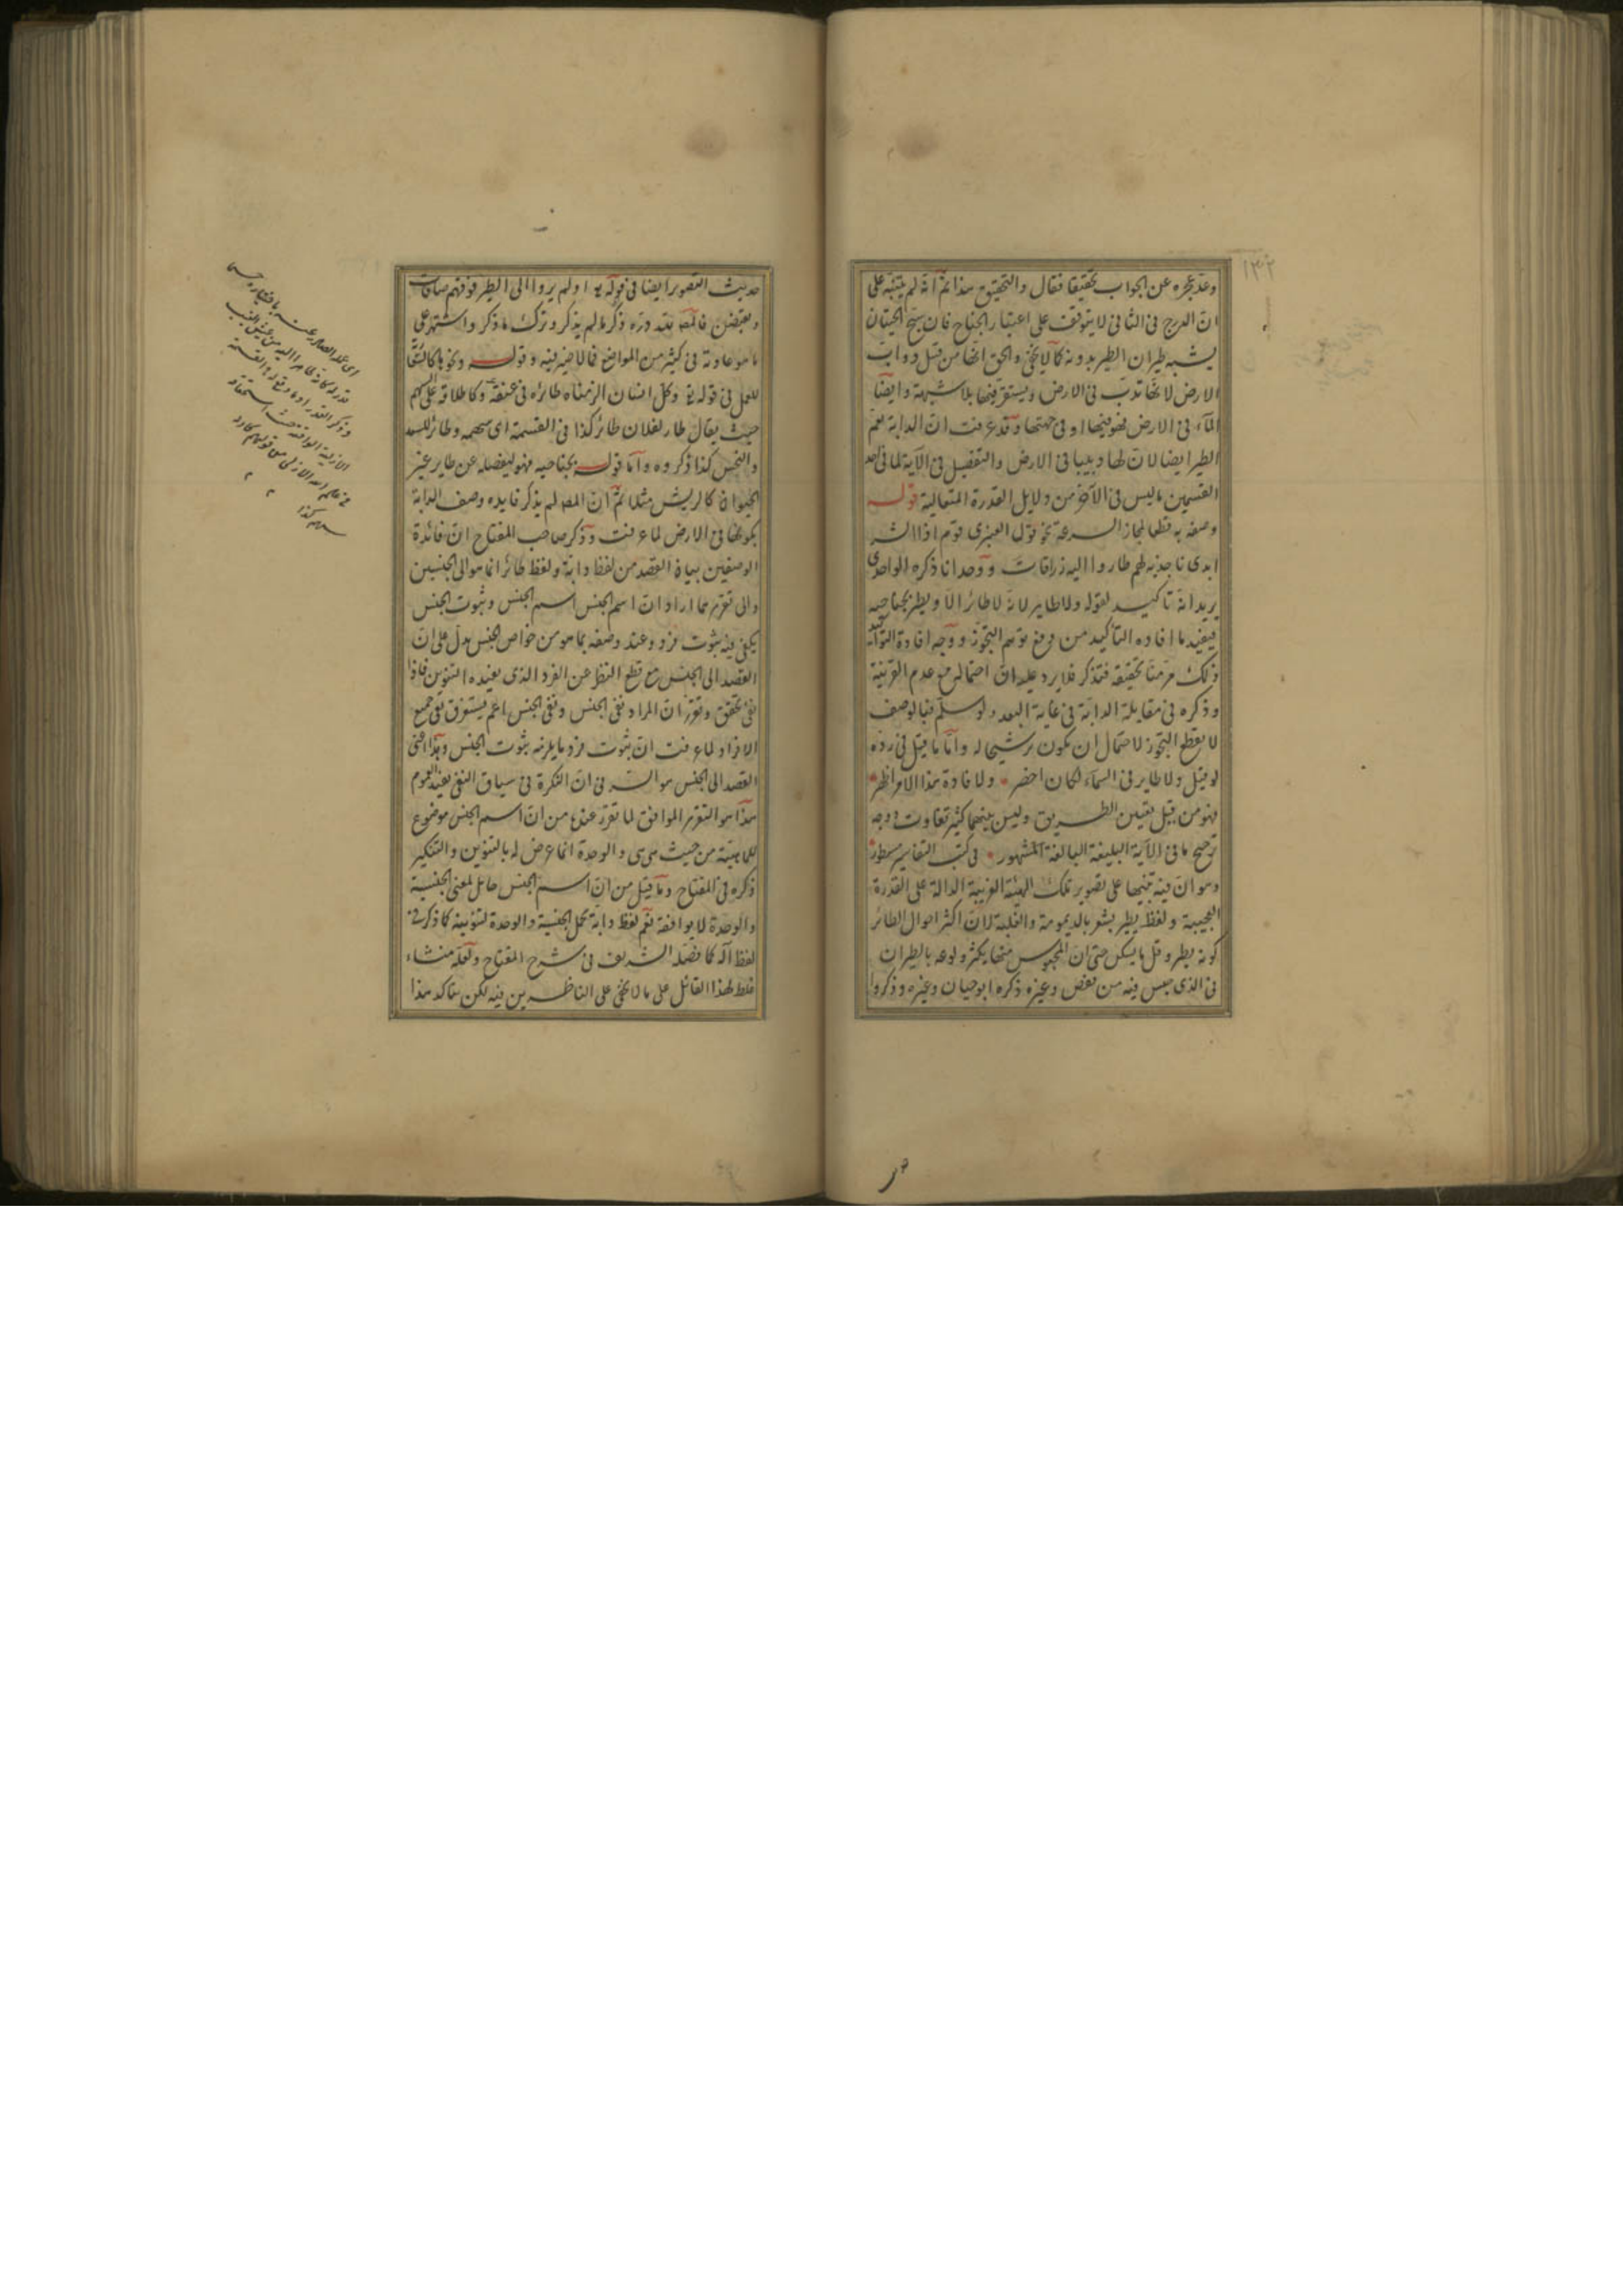 ١٣٢
وعدّ عجزه عن الجواب تحقيقا فقال والتحقيق هذا ثم انه لم يتنبه على
ان الدرج فى الثانى لا يتوقف على اعتبار الجناح فان سبح الحيتان
يشبه طيران الطير بدونه كما لا يخفى والحق انها من قبيل دواب
الارض لانها تدب فى الارض ويستقر فيها بلا شبهة وايضا
الماء فى الارض فهو فيها او فى جهتها وقد عرفت ان الدابة تعم
الطير ايضا لان لها دبيبا فى الارض والتفصيل فى الآية لما فى احد
القسمين ما ليس فى الآخر من دلايل القدرة المتعالية قوله
وصفه به قطعا لمجاز السرعة نحو قول العنبرى قوم اذا الشر
ابدى ناجذيه لهم طاروا اليه زرافات ووحدانا ذكره الواحدى
يريد انه تاكيد لقوله ولا طاير لانه لا طائر الا ويطير بجناحيه
فيفيد ما افاده التأكيد من دفع توهم التجوز ووجه افادة التوكيد
ذلك مر منا تحقيقه فتذكر فلا يرد عليه ان احتماله مع عدم القرينة
وذكره فى مقابلة الدابة فى غاية البعد ولو سلم فبالوصف
لا يقطع التجوز لاحتمال ان يكون ترشيحا له واما ما قيل فى رده
لو قيل ولا طاير فى السماء لكان اخصر ولافادة هذا الامر اظهر
فهو من قبيل تعيين الطريق وليس بينهما كثير تفاوت ووجه
ترجيح ما فى الآية البليغة البالغة المشهور فى كتب التفاسير مسطور
وهو ان فيه تنبيها على تصوير تلك الهيئة الغريبة الدالة على القدرة
العجيبة ولفظ يطير يشعر بالديمومة والغلبة لان اكثر احوال الطائر
كونه يطير وقل ما يسكن حتى ان المحبوس منها يكثر ولوعه بالطيران
فى الذى حبس فيه من قفص وغيره ذكره ابو حيان وغيره وذكروا
حديث التصوير ايضا فى قوله تع اولم يروا الى الطير فوقهم صافات
ويقبضن فالمص لله دره ذكر ما لم يذكر وترك ما ذكر واشتهر على
ما هو عادته فى كثير من المواضع فلا ضير فيه وقوله ونحوها كالشقا
للعمل فى قوله تع وكل انسان الزمناه طائره فى عنقه وكاطلاقه على السهم
حيث يقال طار لفلان طائر كذا فى القسمة اى سهمه وطائر للسعد
والنحس كذا ذكروه واما قوله بجناحيه فهو ليفصله عن طاير غير
الحيوان كالريش مثلا ثم ان المص لم يذكر فايده وصف الدابة
بكونها فى الارض لما عرفت وذكر صاحب المفتاح ان فائدة
الوصفين بيان القصد من لفظ دابة ولفظ طائر انما هو الى الجنسين
والى تقريرهما اراد ان اسم الجنس وثبوت الجنس
يكفى فيه ثبوت فرد وعند وصفه بما هو من خواص الجنس يدل على ان
القصد الى الجنس مع قطع النظر عن الفرد الذى يفيده التنوين فاذا
نفى تحقق وتقرر ان المراد نفى الجنس ونفى الجنس اعم يستغرق نفى جميع
الافراد لما عرفت ان ثبوت فرد ما يلزمه ثبوت الجنس وهذا اعنى
القصد الى الجنس هو السر فى ان النكرة فى سياق النفى يفيد العموم
هذا هو التقرير الموافق لما تقرر عندنا من ان اسم الجنس موضوع
للماهية من حيث هى هى والوحدة انما عرض له بالتنوين والتنكير
ذكره فى المفتاح وما قيل من ان اسم الجنس حامل لمعنى الجنسية
والوحدة لا يوافقه نعم لفظ دابة يحمل الجنسية والوحدة لتنوينه كما ذكر فى
لفظ اله كما فصله الشريف فى شرح المفتاح ولعله منشاء
غلط لهذا القائل على ما لا يخفى على الناظرين فيه لكن يتأكد هذا
اى عمله الصادر عنه باختياره
من عش الغيب
وذكر القدر
الازلية الواقعة حسب استحقاقه
فى علم الله الازلى من قولهم
سهم كذا